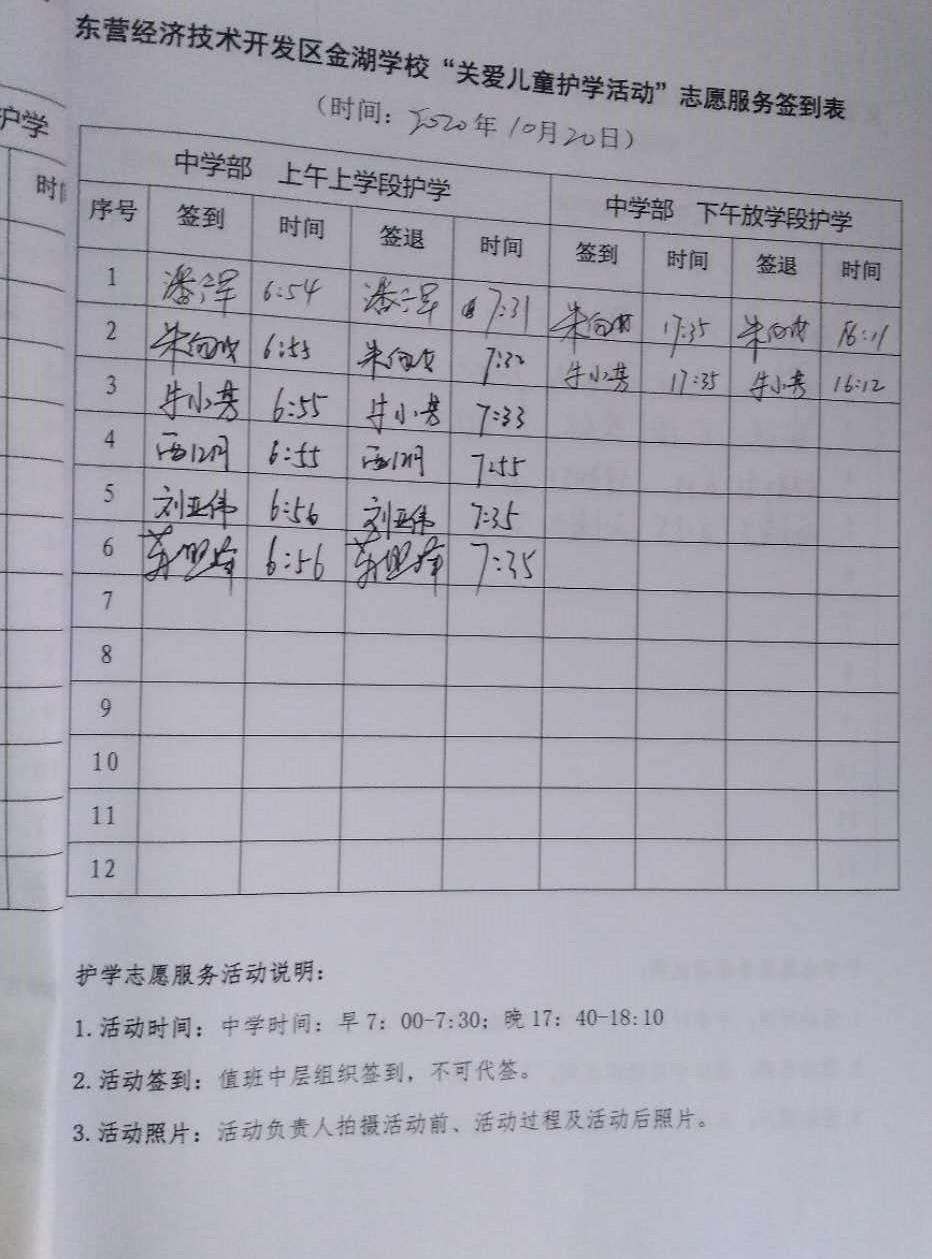 东营经济技术开发区金湖学校“关爱儿童护学活动”志愿服务签到表
（时间：2020年10月20日）
护学
时
中学部 上午上学段护学 中学部 下午放学段护学
序号 签到 时间 签退 时间 签到 时间 签退 时间
1 6:54 7:31 17:35 16:11
2 6:55 7:32 牛小芳 17:35 牛小芳 16:12
3 牛小芳 6:55 牛小芳 7:33
4 6:55 7:55
5 刘亚伟 6:56 刘亚伟 7:35
6 6:56 7:35
7
8
9
10
11
12
护学志愿服务活动说明：
1.活动时间：中学时间：早7：00-7:30；晚17：40-18:10
2.活动签到：值班中层组织签到，不可代签。
3.活动照片：活动负责人拍摄活动前、活动过程及活动后照片。